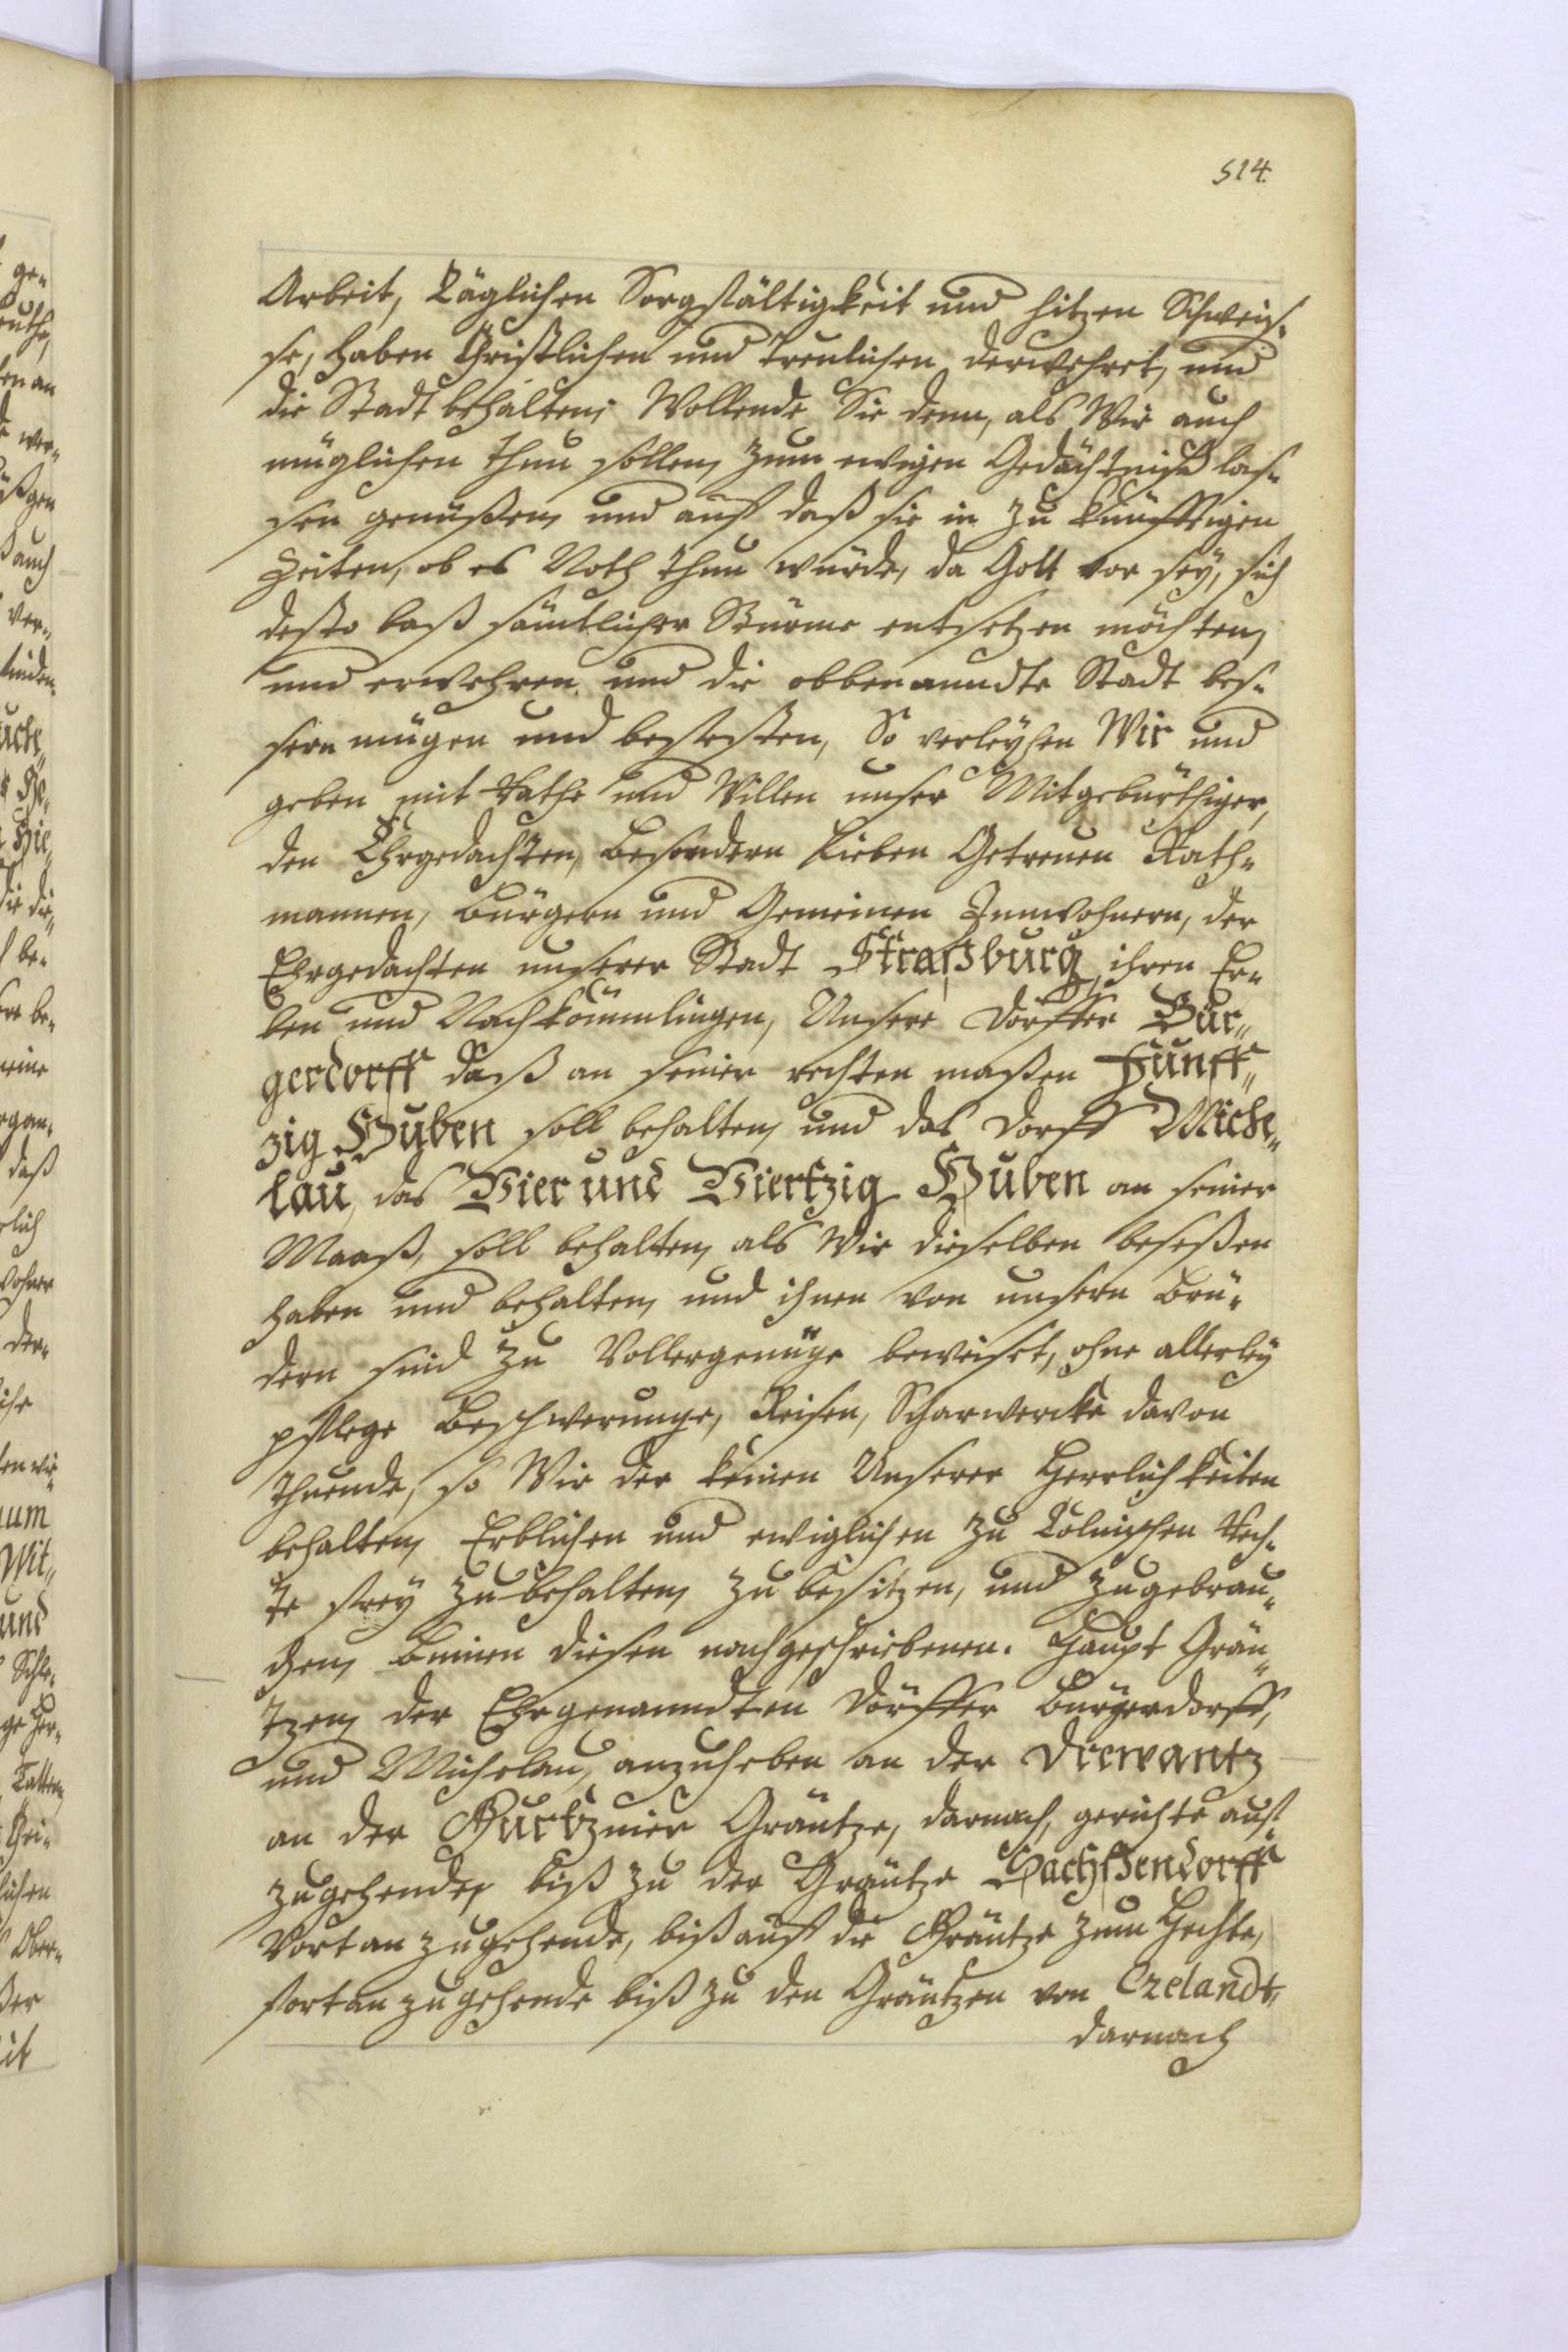 514.
Arbeit, Täglichen Sorgfältigkeit und hitzen Schweis-
se, haben Christlichen und treulichen derwehret, und
die Stadt behalten; Wollende Sie denn, als Wir auch
müglichen thun sollen, zum ewigen Gedächtniß las-
sen genüßen, und auf daß sie in zu künfftigen
Zeiten, ob es Noth thun würde, da Gott vor sey, sich
desto baß sämtlicher Stürme entsetzen möchten,
und erwehren, und die obbenanndte Stadt bes-
sern mügen und befesten, So verleyhen Wir und
geben mit Rathe und Willen unser Mitgebürthiger,
den Ehrgedachten, besondern Lieben Getreuen Rath-
mannen, Bürgern und Gemeinen Innwohnern, der
Ehrgedachten unserer Stadt Straßburg, ihren Er-
ben und Nachkömmlingen, Unsere Dörffer Bür-
gerdorff daß an seiner rechten maßen Fünff-
zig Huben soll behalten, und das Dorff Miche-
lau, das Vier und Viertzig Huben an seiner
Maaß, soll behalten, als Wir dieselben beseßen
haben und behalten, und ihnen von unsern Brü-
dern sind zu Vollergenüge beweiset, ohne allerley
pflege Beschwerunge, Reisen, Scharwercke davon
thuende, so Wir der keinen Unserer Herrlichkeiten
behalten, Erblichen und ewiglichen zu Cölnischen Rech-
te frey zu behalten, zu besitzen, und zugebrau-
chen, binnen diesen nachgeschriebenen. Haupt Grän-
tzen, der Ehrgenanndten Dörffer Bürgerdorff,
und Michelau, anzuheben an der Drewantz
an der Gurtznier Gräntze, darnach, gerichte auf
zugehende, biß zu der Gräntze Sachßendorff
Vortan zugehende, biß auf die Gräntze zum Hechte,
fortan zugehende biß zu den Gräntzen von Czelandt,
darnach